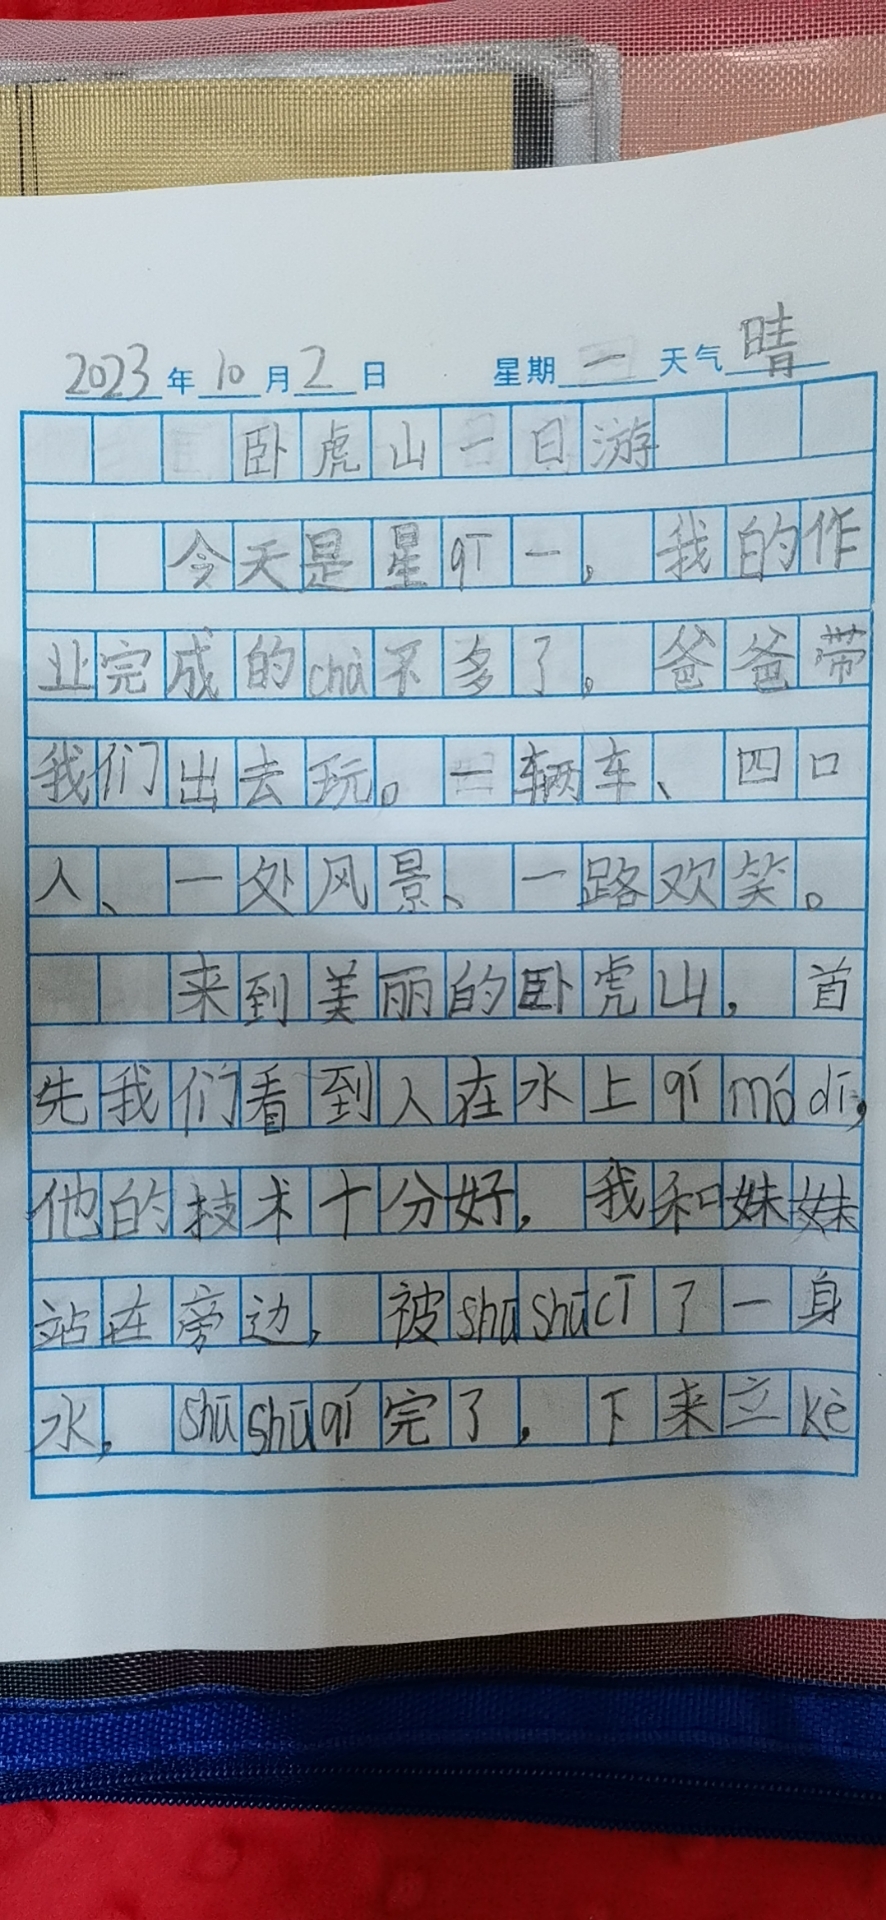 2023年10月2日 星期一天气晴
卧虎山一日游
今天是星qī一，我的作
业完成的chà不多了。爸爸带
我们出去玩。一辆车、四口
人、一处风景、一路欢笑。
来到美丽的卧虎山，首
先我们看到人在水上qí mó dī，
他的技术十分好，我和妹妹
站在旁边，被shū shū cī了一身
水，shū shū qí完了，下来立kè